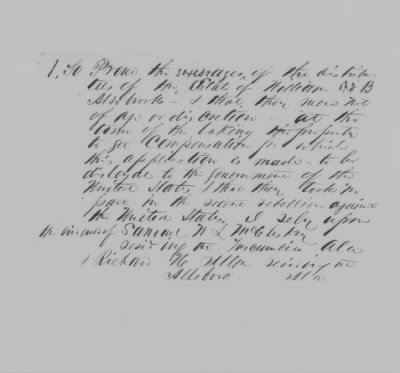 1, To Prove the successors, of the distribu-
tees of the Estate of William B
Alsbrook - & that they were not
of age or discretion - at the
time of the taking the property
to get Compensation for which
this application is made - to be
disloyal to the Government of the
United States, & that they took no
part in the recent rebellion against
the United States, I rely upon
the evidence of Samuel W L McClesky
residing at Tuscumbia Ala
& Richard H Allen residing at
Allsboro Ala